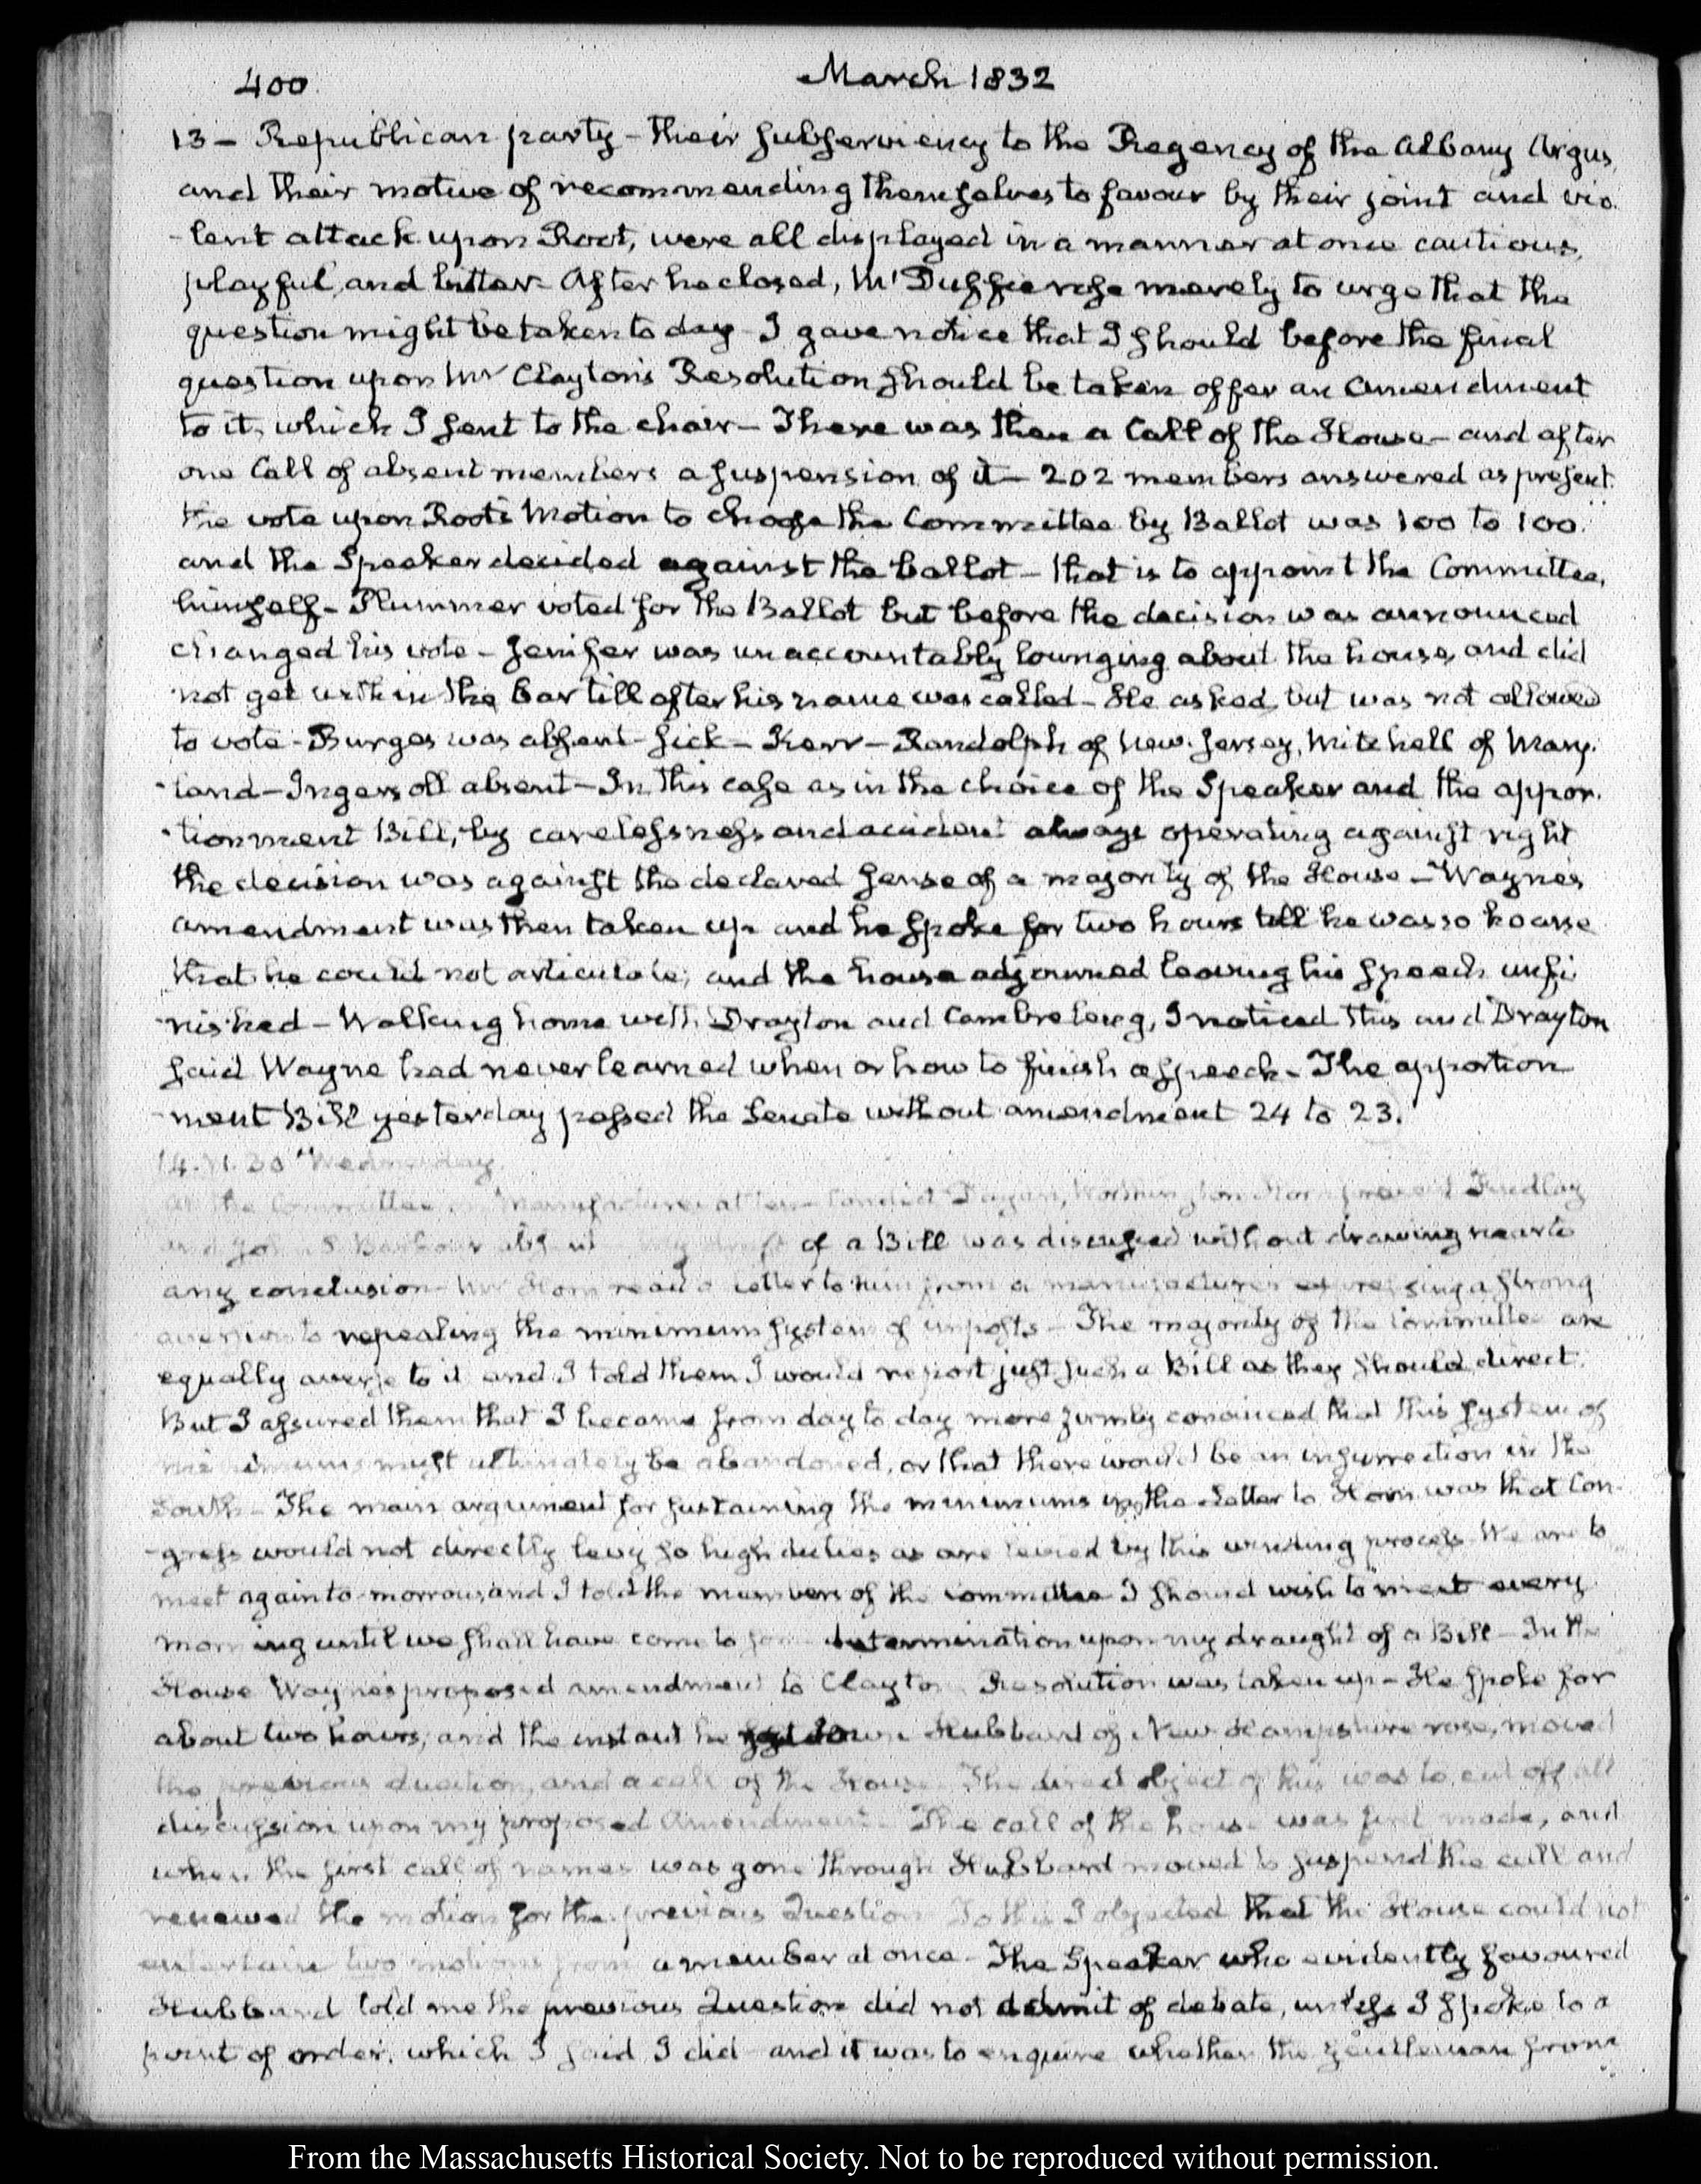 400
March 1832
13 – Republican party – their subserviency to the Regency of the Albany Argus,
and their motive of recommending themselves to favour by their joint and vio-
-lent attack upon Root, were all displayed in a manner at once cautious,
playful, and bitter – After he closed, Mr Duffie rose merely to urge that the
question might be taken to day – I gave notice that I should before the final
question upon Mr Clayton's Resolution should be taken offer an amendment
to it, which I sent to the chair – There was then a Call of the House – and after
one Call of absent members a suspension of it – 202 members answered as present.
The vote upon Root's Motion to choose the Committee by Ballot was 100 to 100.
and the Speaker decided against the ballot – that is to appoint the Committee,
himself – Plummer voted for the Ballot but before the decision was announced
changed his vote – Jenifer was unaccountably lounging about the house, and did
not get within the bar till after his name was called – He asked, but was not allowed
to vote – Burges was absent – sick – Kerr – Randolph of New-Jersey, Mitchell of Mary-
-land – Ingersoll absent – In this case as in the choice of the Speaker and the appor-
-tionment Bill, by carelessness and accident always operating against right
the decision was against the declared sense of a majority of the House – Wayne's
amendment was then taken up and he spoke for two hours till he was so hoarse
that he could not articulate; and the house adjourned leaving his speech unfi-
-nished – Walking home with Drayton and Cambreleng, I noticed this and Drayton
said Wayne had never learned when or how to finish a speech – The apportion-
-ment Bill yesterday passed the Senate without amendment 24 to 23.
14. VI. 30 Wednesday.
At the Committee on Manufactures Condict Dayan, Worthington Horn present Findlay
and John S. Barbour absent my draft of a Bill was discussed without drawing near to
any conclusion – Mr Horn read a letter to him from a manufacturer expressing a strong
aversion to repealing the minimum system of imposts – The majority of the Committee are
equally averse to it and I told them I would report just such a Bill as they should direct.
But I assured them that I became from day to day more firmly convinced that this system of
minimums must ultimately be abandoned, or that there would be an insurrection in the
South – The main argument for sustaining the minimums in the Letter to Horn was that Con-
-gress would not directly levy so high duties as are levied by this winding process. We are to
meet again to-morrow, and I told the members of the committee I should wish to meet every
morning until we shall have come to some determination upon my draught of a Bill – In the
House Wayne's proposed amendment to Clayton's Resolution was taken up – He spoke for
about two hours, and the instant he sat down Hubbard of New-Hampshire rose, moved
the previous question, and a call of the House. The direct object of this was to cut off all
discussion upon my proposed Amendment – The call of the house was first made, and
when the first call of names was gone through Hubbard moved to suspend the call and
renewed the motion for the previous Question To this I objected that the House could not
entertain two motions from a member at once – The Speaker who evidently favoured
Hubbard told me the previous Question did not admit of debate, unless I spoke to a
point of order, which I said I did and it was to enquire whether the gentleman from
From the Massachusetts Historical Society. Not to be reproduced without permission.